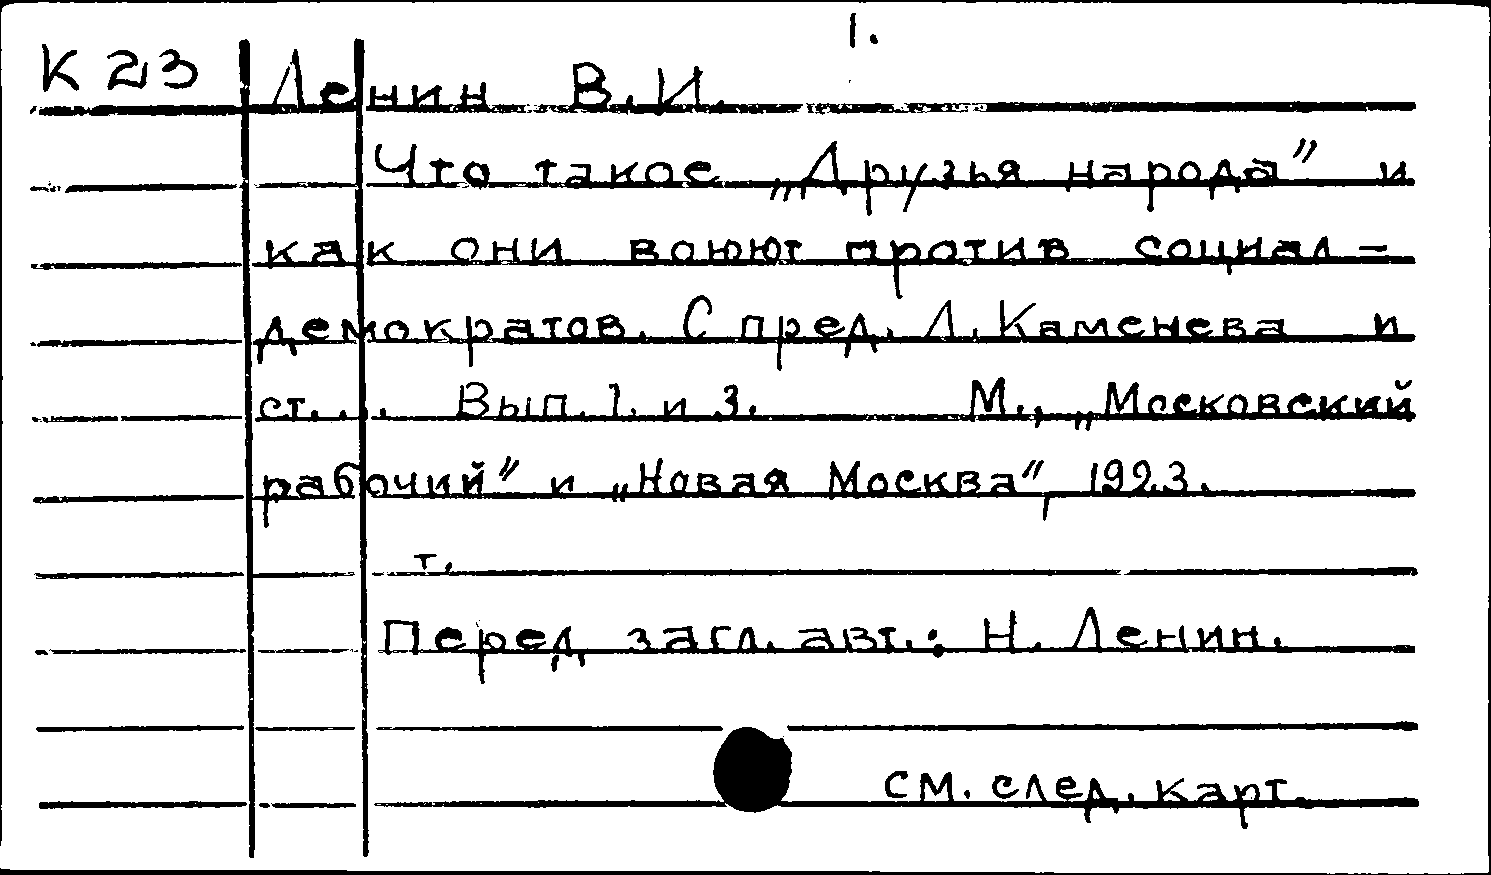 1.
К 23 Ленин В.И.
Что такое „Друзья народа" и
как они воюют против социал-
демократов. С пред. Л. Каменева и
ст. . . Вып. 1. и 3. М., „Московский
рабочий" и „Новая Москва", 1923.
т.
Перед загл. авт.: Н. Ленин.
см. след. карт.